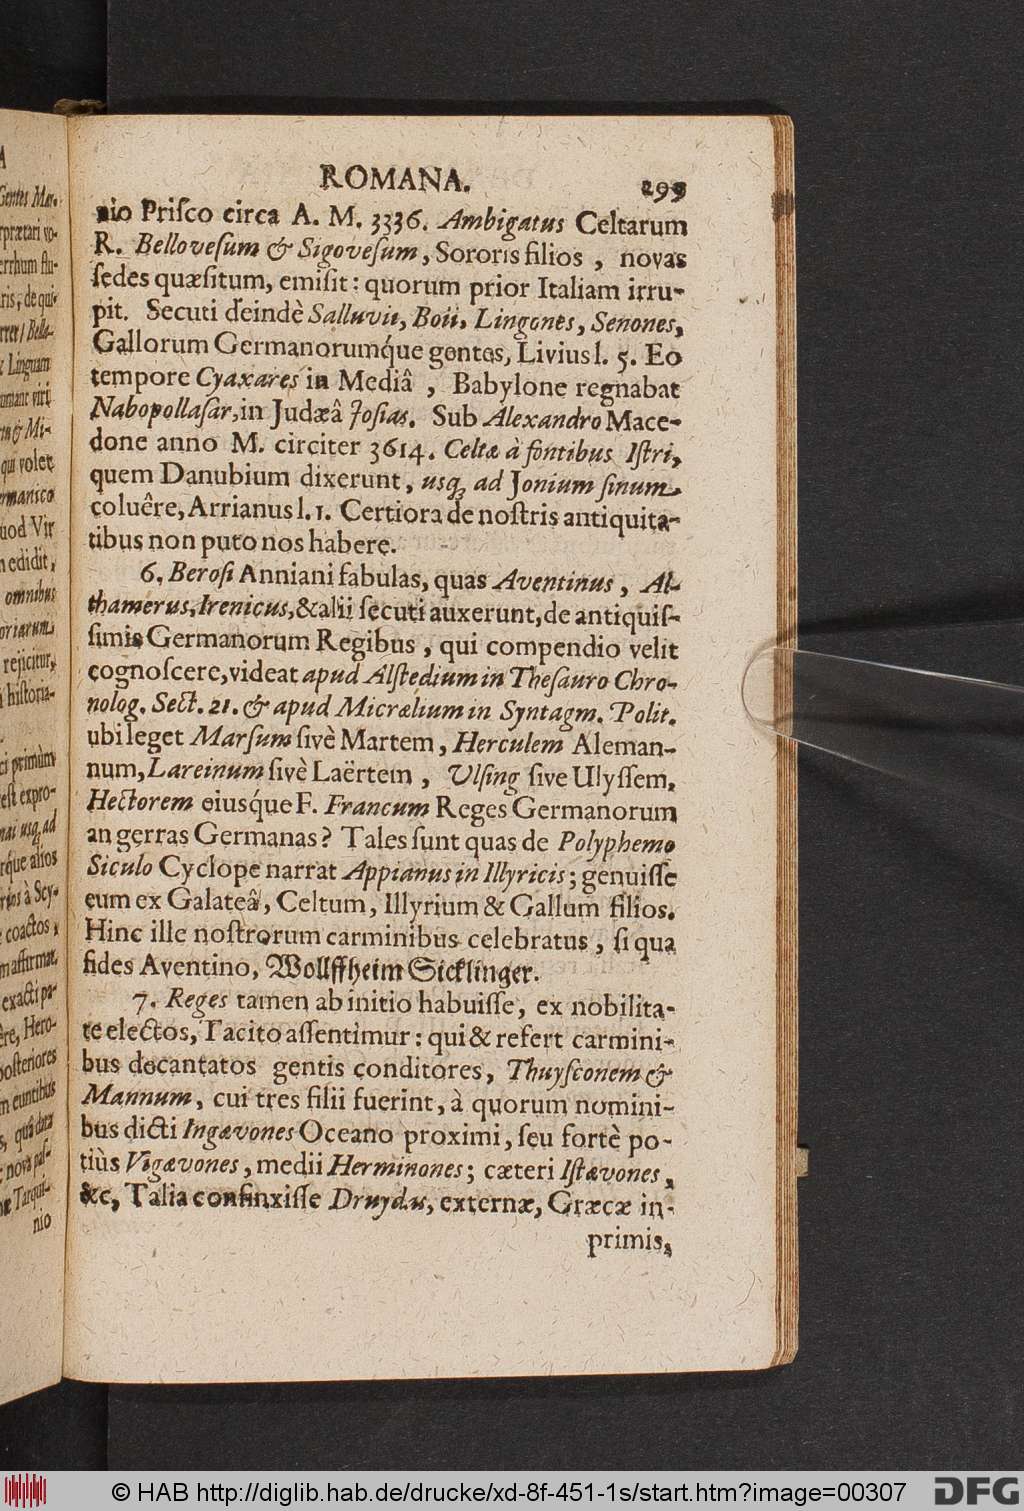 ROMANA. 299
nio Priſco circa A. M. 3336. Ambigatus Celtarum
R. Belloveſum & Sigoveſum, Sororis filios, novas
ſedes quæſitum, emiſit: quorum prior Italiam irru-
pit. Secuti deindè Salluvii, Boii, Lingones, Senones,
Gallorum Germanorumq́ue gentes, Livius l. 5. Eo
tempore Cyaxares in Mediâ, Babylone regnabat
Nabopollaſar, in Judæâ Joſias. Sub Alexandro Mace-
done anno M. circiter 3614. Celtæ à fontibus Iſtri,
quem Danubium dixerunt, usq; ad Jonium ſinum
coluêre, Arrianus l. 1. Certiora de noſtris antiquita-
tibus non puto nos habere.
6. Beroſi Anniani fabulas, quas Aventinus, Al-
thamerus, Irenicus, & alii ſecuti auxerunt, de antiquiſ-
ſimis Germanorum Regibus, qui compendio velit
cognoſcere, videat apud Alſtedium in Theſauro Chro-
nolog. Sect. 21. & apud Micrælium in Syntagm. Polit.
ubi leget Marſum ſivè Martem, Herculem Aleman-
num, Lareinum ſivè Laërtem, Ulſing ſive Ulyſſem,
Hectorem eiusq́ue F. Francum Reges Germanorum
an gerras Germanas? Tales ſunt quas de Polyphemo
Siculo Cyclope narrat Appianus in Illyricis; genuiſſe
eum ex Galateâ, Celtum, Illyrium & Gallum filios.
Hinc ille noſtrorum carminibus celebratus, ſi qua
fides Aventino, Wollffheim Sicklinger.
7. Reges tamen ab initio habuiſſe, ex nobilita-
te electos, Tacito aſſentimur: qui & refert carmini-
bus decantatos gentis conditores, Thuyſconem &
Mannum, cui tres filii fuerint, à quorum nomini-
bus dicti Ingævones Oceano proximi, ſeu fortè po-
tiùs Vigævones, medii Herminones; cæteri Iſtævones,
&c, Talia confinxiſſe Druydas, externæ, Græcæ in-
primis,
Gentes Mar-
prætari vo-
errhum flu-
ris, de qui-
Linguam
& Mi-
qui volet
ermanico
uod Vir
edidit,
omnibus
oriarum
rejicitur,
hiſtoria-
ci primùm
eſt expro-
nai usq; ad
rq́ue alios
à Scy-
coactos,
affirmat,
exacti pa-
êre, Hero-
poſteriores
m euntibus
nova paſ-
Tarqui-
nio
© HAB http://diglib.hab.de/drucke/xd-8f-451-1s/start.htm?image=00307
DFG